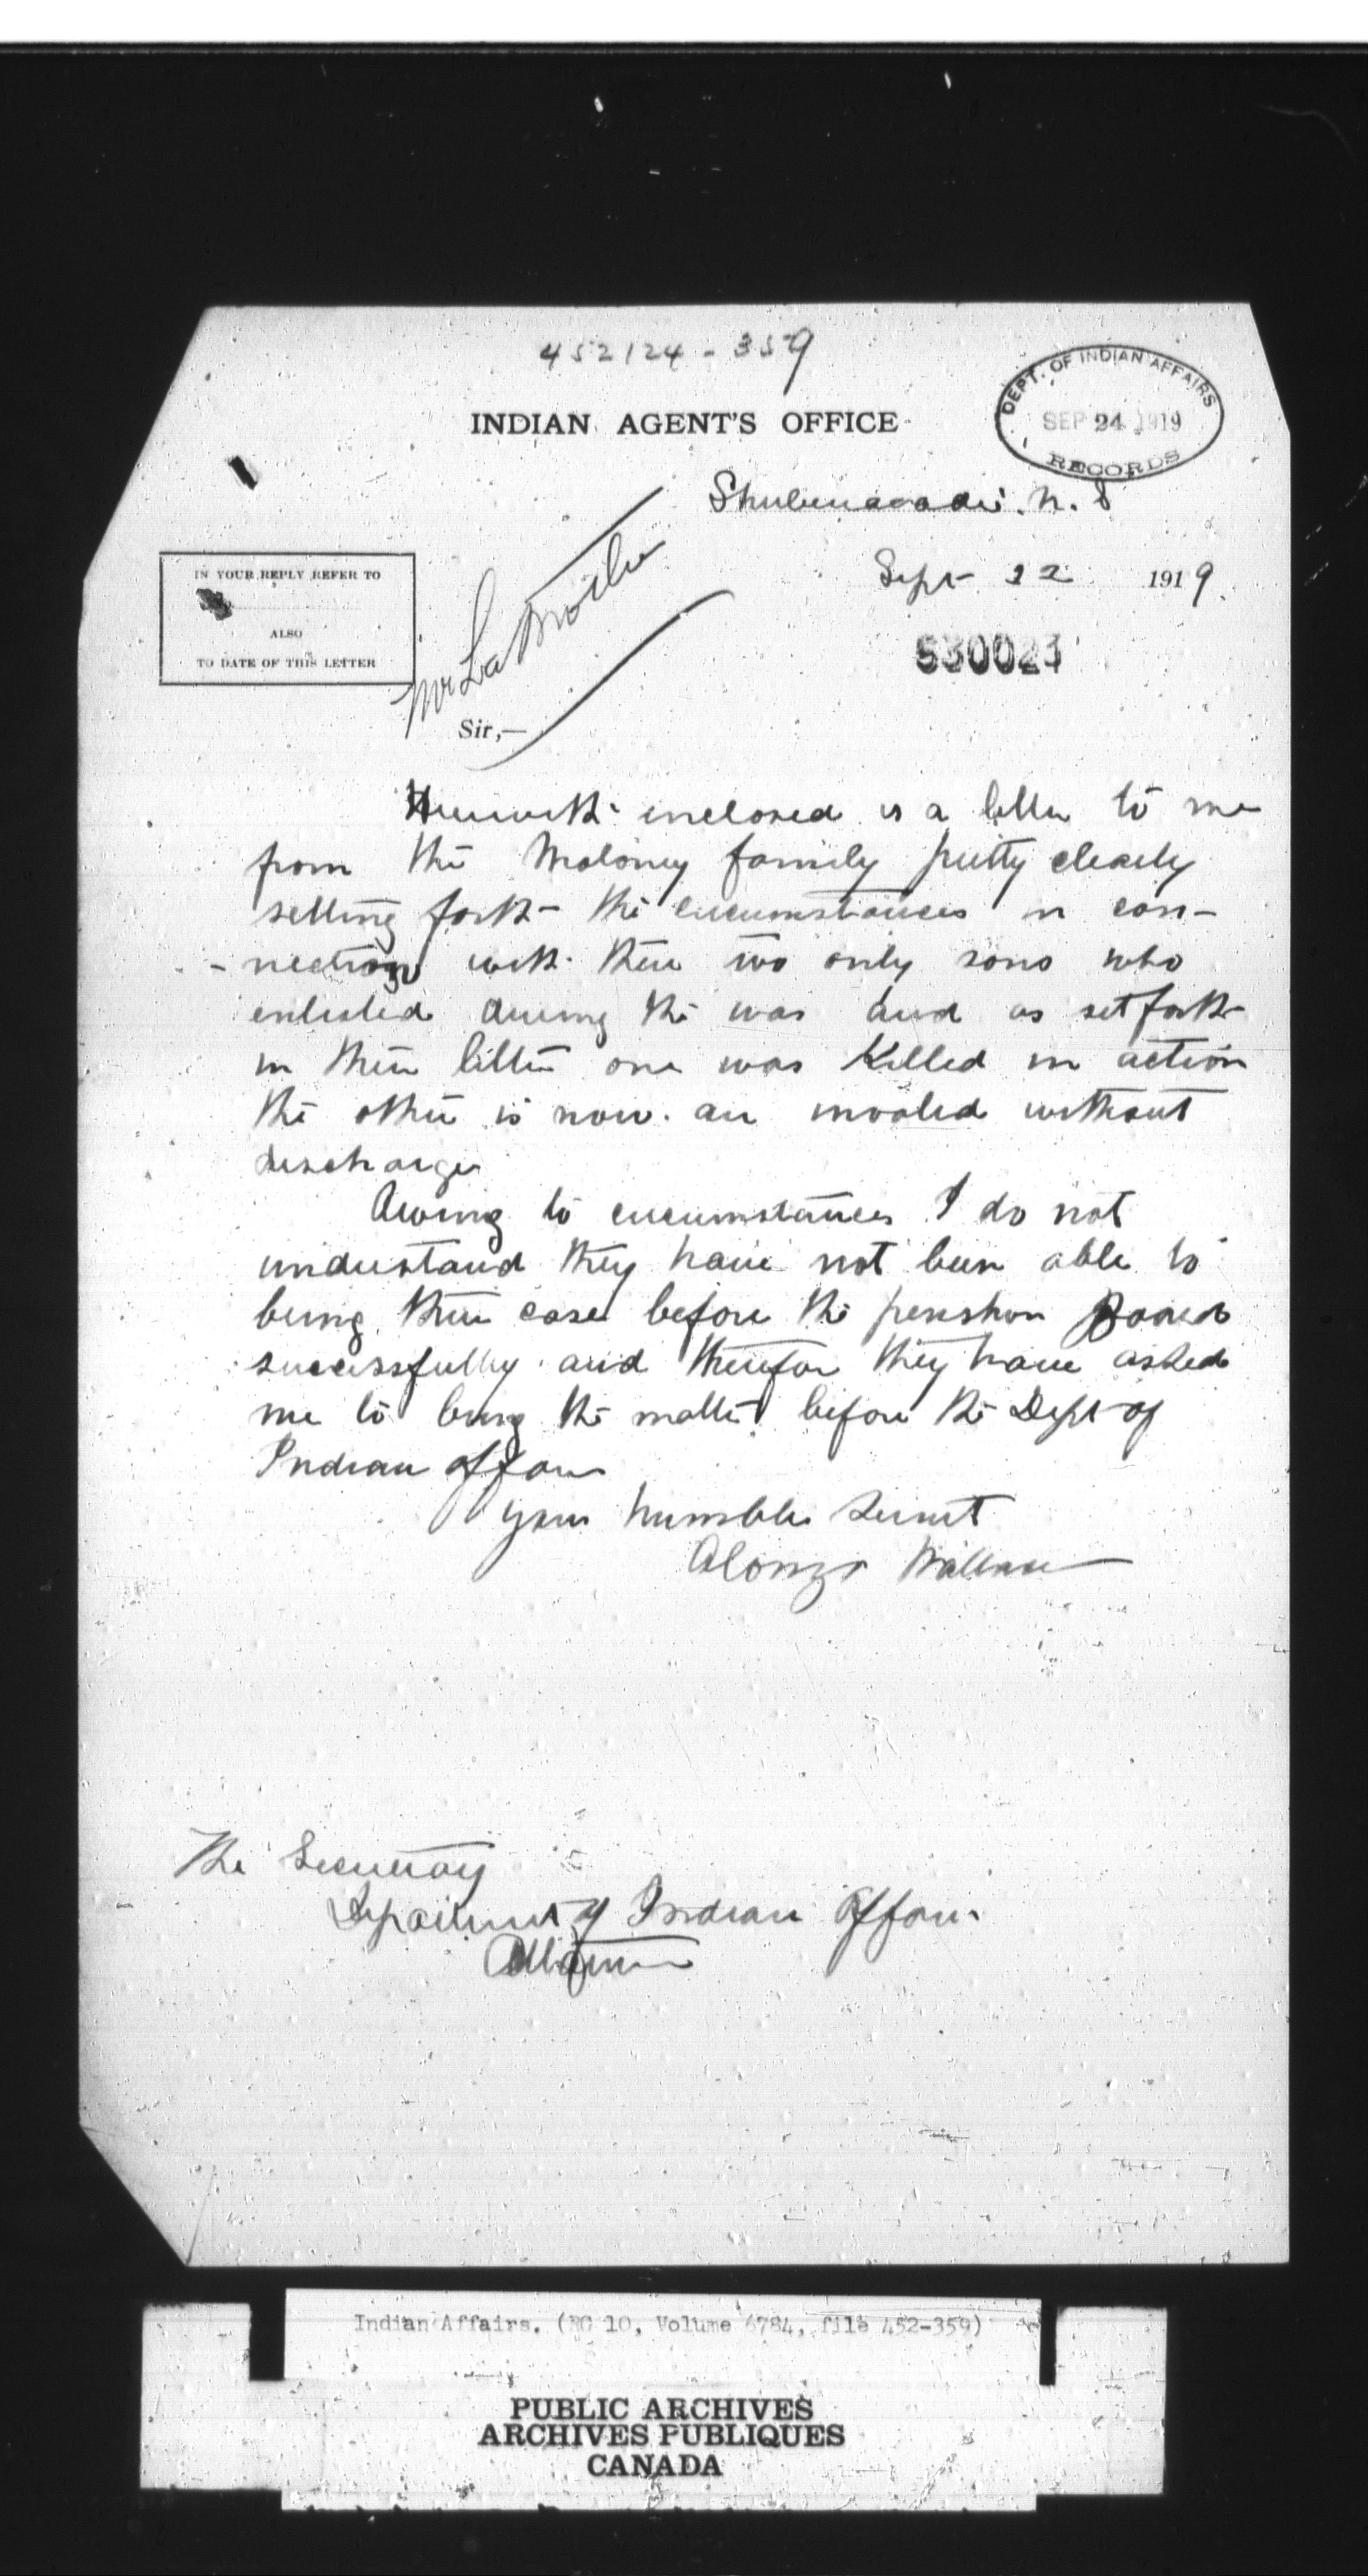 452124-359
INDIAN AGENT'S OFFICE
DEPT. OF INDIAN AFFAIRS
SEP 24 1919
RECORDS
Shubenacadie. N. S
Sept 22 1919.
IN YOUR REPLY REFER TO
ALSO
TO DATE OF THIS LETTER
530021
Mr La Mothe
Sir,—
Herewith enclosed is a letter to me
from the Maloney family pretty clearly
setting forth the circumstances in con-
-nection with their two only sons who
enlisted during the war and as set forth
in their letter one was Killed in action
the other is now an invalid without
discharge
Owing to circumstances I do not
understand they have not been able to
bring their case before the penshon Board
successfully and therefor they have asked
me to bring the matter before the Dept of
Indian Affairs
Your humble Servnt
Alonzo Wallace
The Secretary
Department of Indian Affairs
Ottawa
Indian Affairs. (RG 10, Volume 6784, file 452-359)
PUBLIC ARCHIVES
ARCHIVES PUBLIQUES
CANADA